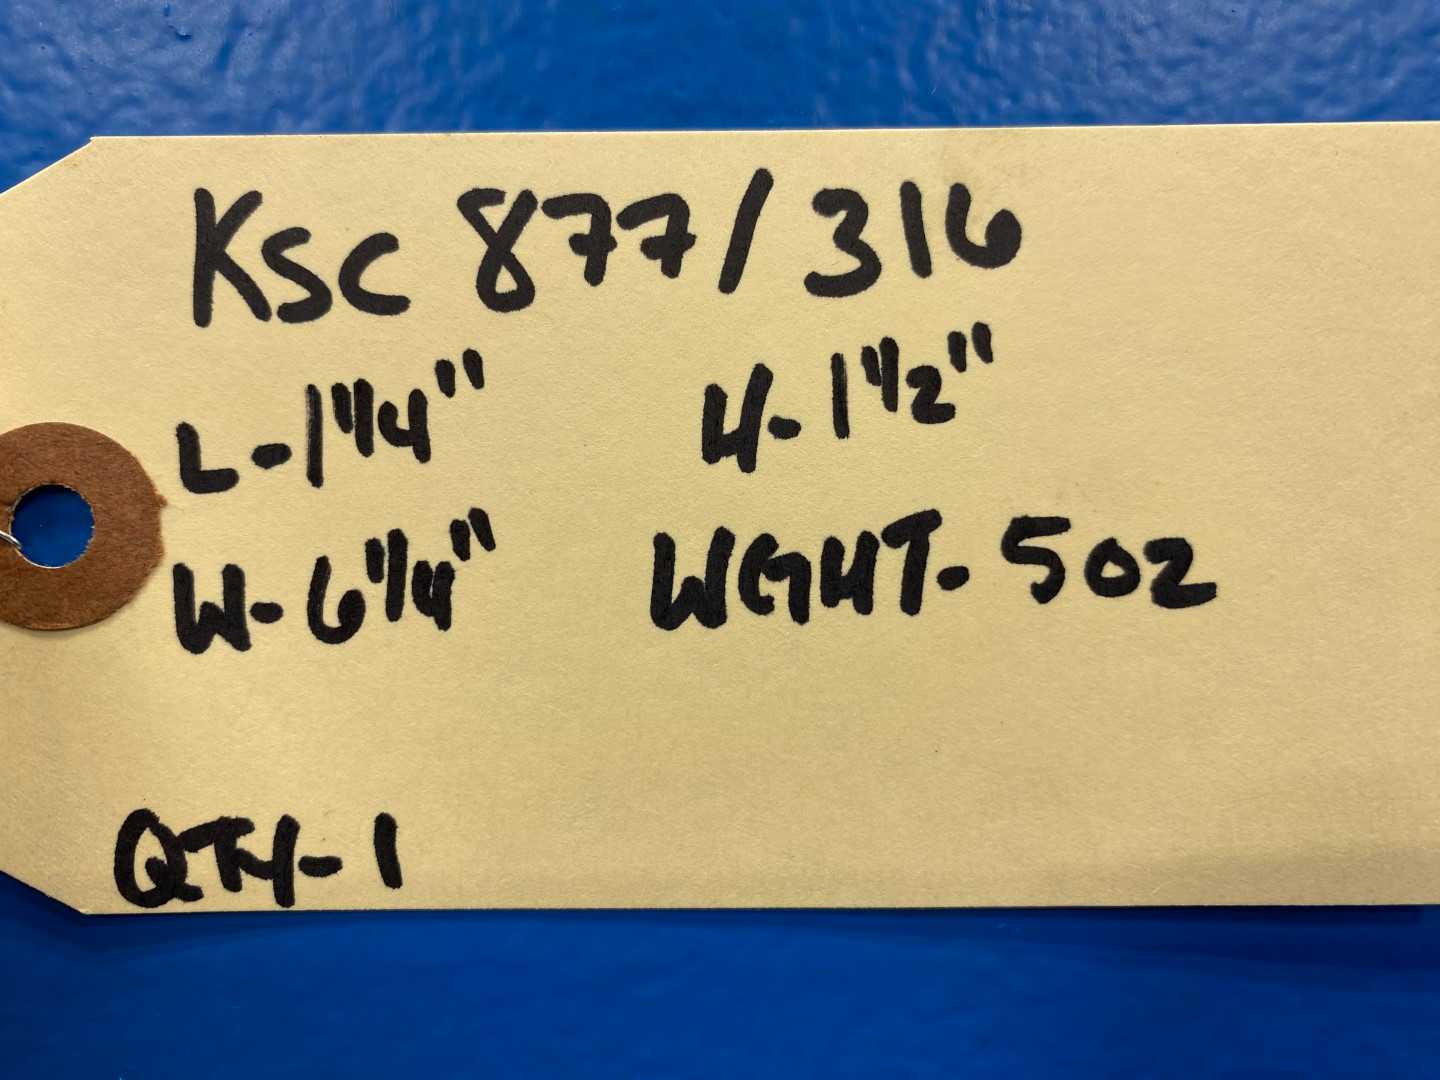 KSC 877/316
L-1 1/4" H-1 1/2"
W-6 1/4" WGHT-5oz
QTY-1